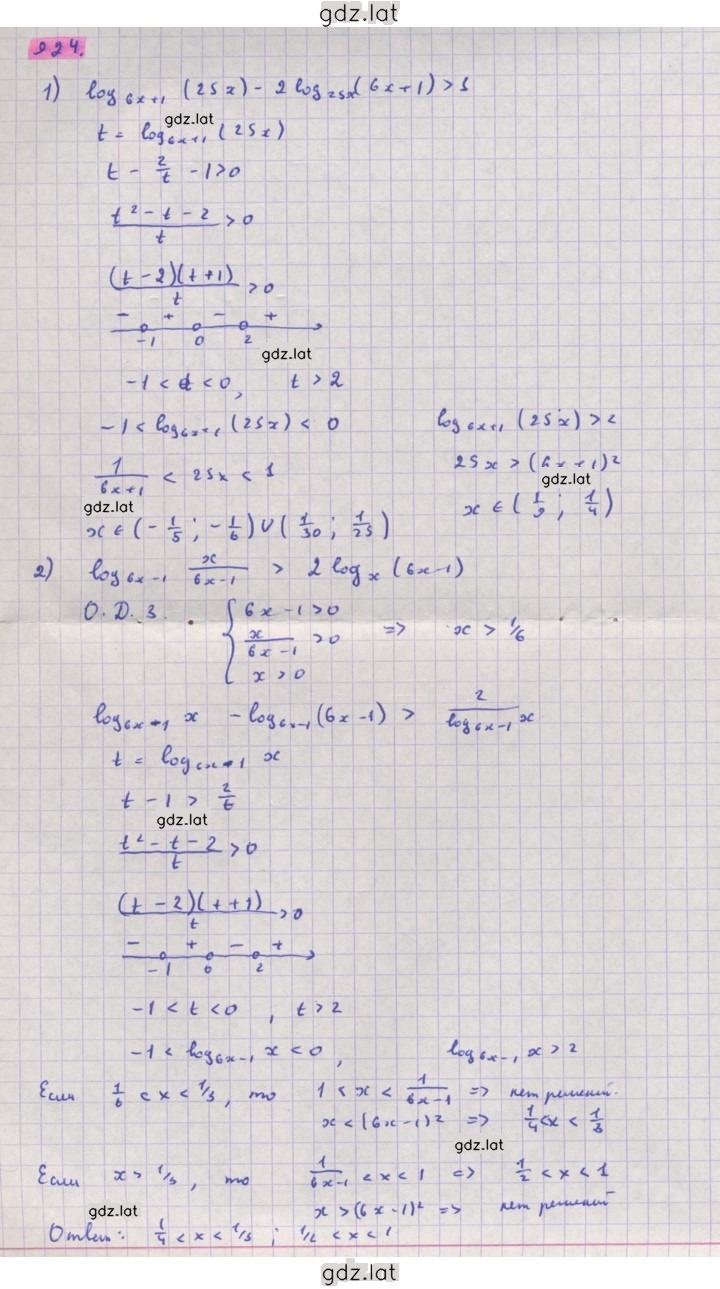 gdz.lat
924.
1) log_{6x+1} (25x) - 2 log_{25x} (6x+1) > 1
gdz.lat
t = log_{6x+1} (25x)
t - 2/t - 1 > 0
(t² - t - 2)/t > 0
((t-2)(t+1))/t > 0
- + - +
-1 0 2
gdz.lat
-1 < t < 0, t > 2
-1 < log_{6x+1} (25x) < 0 log_{6x+1} (25x) > 2
1/(6x+1) < 25x < 1 25x > (6x+1)²
gdz.lat gdz.lat
x ∈ (-1/5; -1/6) ∪ (1/30; 1/25) x ∈ (1/9; 1/4)
2) log_{6x-1} x/(6x-1) > 2 log_x (6x-1)
О.Д.З. { 6x-1 > 0
x/(6x-1) > 0 => x > 1/6
x > 0
log_{6x-1} x - log_{6x-1} (6x-1) > 2/(log_{6x-1} x)
t = log_{6x-1} x
t - 1 > 2/t
gdz.lat
(t² - t - 2)/t > 0
((t-2)(t+1))/t > 0
- + - +
-1 0 2
-1 < t < 0, t > 2
-1 < log_{6x-1} x < 0, log_{6x-1} x > 2
Если 1/6 < x < 1/3, то 1 < x < 1/(6x-1) => нет решений.
x < (6x-1)² => 1/4 < x < 1/3
gdz.lat
Если x > 1/3, то 1/(6x-1) < x < 1 => 1/2 < x < 1
x > (6x-1)² => нет решений
gdz.lat
Ответ: 1/4 < x < 1/3; 1/2 < x < 1
gdz.lat